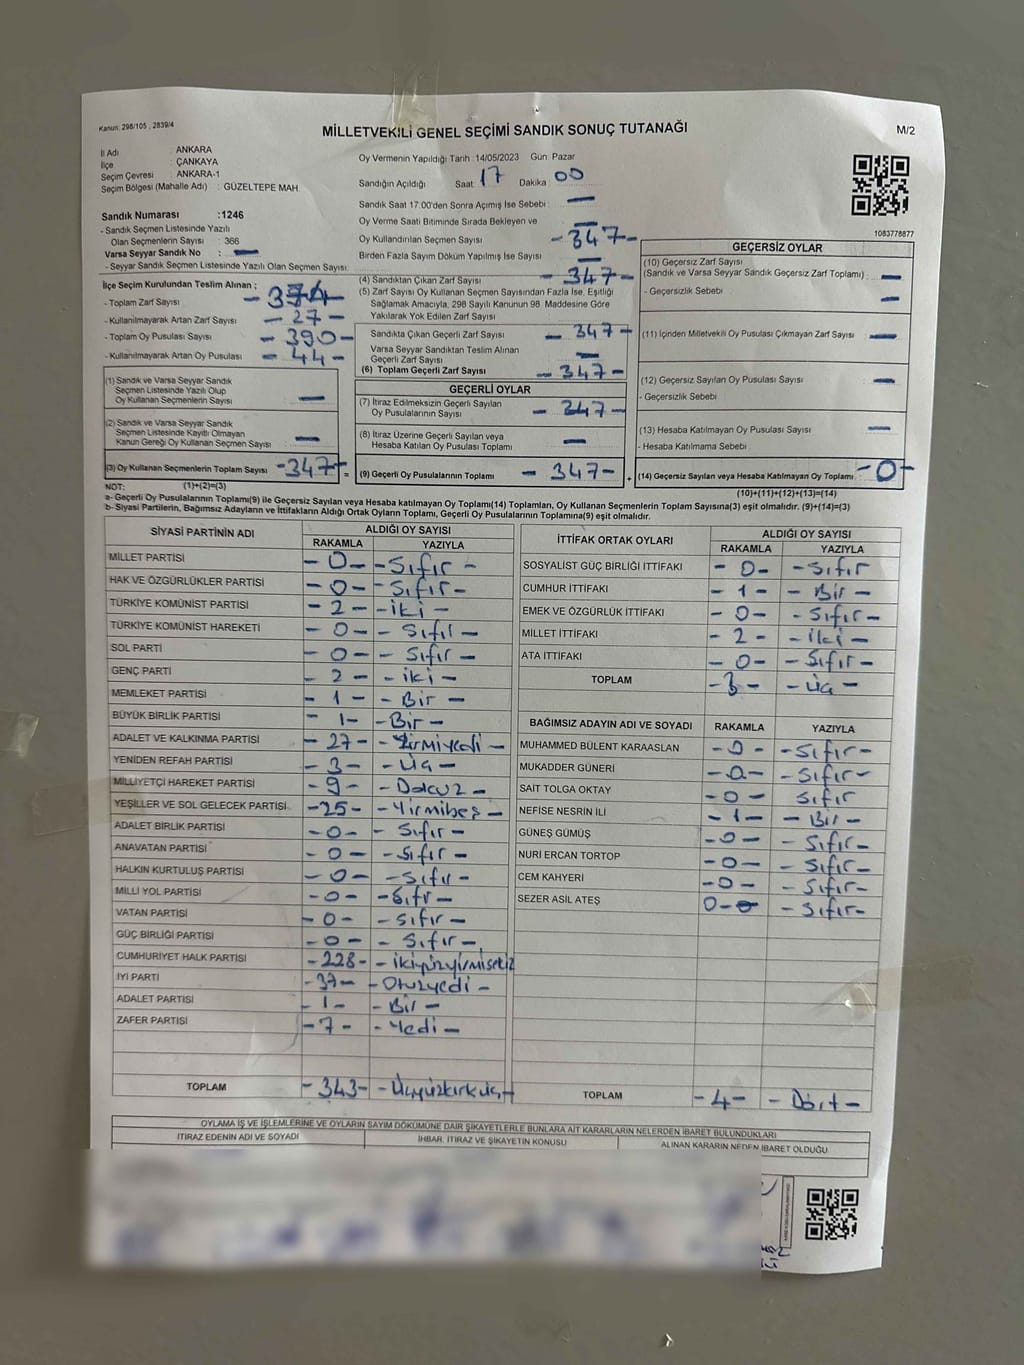 Kanun: 298/105 , 2839/4
MİLLETVEKİLİ GENEL SEÇİMİ SANDIK SONUÇ TUTANAĞI
M/2
İl Adı : ANKARA
İlçe : ÇANKAYA
Seçim Çevresi : ANKARA-1
Seçim Bölgesi (Mahalle Adı) : GÜZELTEPE MAH
Sandık Numarası :1246
- Sandık Seçmen Listesinde Yazılı
Olan Seçmenlerin Sayısı : 366
Varsa Seyyar Sandık No : —
- Seyyar Sandık Seçmen Listesinde Yazılı Olan Seçmen Sayısı:
İlçe Seçim Kurulundan Teslim Alınan ;
- Toplam Zarf Sayısı
- Kullanılmayarak Artan Zarf Sayısı - 27 -
- Toplam Oy Pusulası Sayısı - 390 -
- Kullanılmayarak Artan Oy Pusulası - 44 -
(1) Sandık ve Varsa Seyyar Sandık
Seçmen Listesinde Yazılı Olup
Oy Kullanan Seçmenlerin Sayısı —
(2) Sandık ve Varsa Seyyar Sandık
Seçmen Listesinde Kayıtlı Olmayan
Kanun Gereği Oy Kullanan Seçmen Sayısı —
(3) Oy Kullanan Seçmenlerin Toplam Sayısı -347-
Oy Vermenin Yapıldığı Tarih : 14/05/2023 Gün: Pazar
Sandığın Açıldığı Saat : 17 Dakika : 00
Sandık Saat 17:00'den Sonra Açımış İse Sebebi : —
Oy Verme Saati Bitiminde Sırada Bekleyen ve
Oy Kullandırılan Seçmen Sayısı - 347 -
Birden Fazla Sayım Döküm Yapılmış İse Sayısı —
(4) Sandıktan Çıkan Zarf Sayısı - 347 -
(5) Zarf Sayısı Oy Kullanan Seçmen Sayısından Fazla İse, Eşitliği
Sağlamak Amacıyla, 298 Sayılı Kanunun 98. Maddesine Göre
Yakılarak Yok Edilen Zarf Sayısı
Sandıkta Çıkan Geçerli Zarf Sayısı - 347 -
Varsa Seyyar Sandıktan Teslim Alınan
Geçerli Zarf Sayısı —
(6) Toplam Geçerli Zarf Sayısı - 347 -
GEÇERLİ OYLAR
(7) İtiraz Edilmeksizin Geçerli Sayılan
Oy Pusulalarının Sayısı - 347 -
(8) İtiraz Üzerine Geçerli Sayılan veya
Hesaba Katılan Oy Pusulası Toplamı —
= (9) Geçerli Oy Pusulalarının Toplamı - 347 -
1083778877
GEÇERSİZ OYLAR
(10) Geçersiz Zarf Sayısı
(Sandık ve Varsa Seyyar Sandık Geçersiz Zarf Toplamı) : —
- Geçersizlik Sebebi : —
(11) İçinden Milletvekili Oy Pusulası Çıkmayan Zarf Sayısı —
(12) Geçersiz Sayılan Oy Pusulası Sayısı —
- Geçersizlik Sebebi
(13) Hesaba Katılmayan Oy Pusulası Sayısı —
- Hesaba Katılmama Sebebi
+ (14) Geçersiz Sayılan veya Hesaba Katılmayan Oy Toplamı : - 0 -
NOT: (1)+(2)=(3)
(10)+(11)+(12)+(13)=(14)
a- Geçerli Oy Pusulalarının Toplamı(9) ile Geçersiz Sayılan veya Hesaba katılmayan Oy Toplamı(14) Toplamları, Oy Kullanan Seçmenlerin Toplam Sayısına(3) eşit olmalıdır. (9)+(14)=(3)
b- Siyasi Partilerin, Bağımsız Adayların ve İttifakların Aldığı Ortak Oyların Toplamı, Geçerli Oy Pusulalarının Toplamına(9) eşit olmalıdır.
SİYASİ PARTİNİN ADI ALDIĞI OY SAYISI
RAKAMLA YAZIYLA
MİLLET PARTİSİ - 0 - - Sıfır -
HAK VE ÖZGÜRLÜKLER PARTİSİ - 0 - - Sıfır -
TÜRKİYE KOMÜNİST PARTİSİ - 2 - - iki -
TÜRKİYE KOMÜNİST HAREKETİ - 0 - - Sıfır -
SOL PARTİ - 0 - - Sıfır -
GENÇ PARTİ - 2 - - iki -
MEMLEKET PARTİSİ - 1 - - Bir -
BÜYÜK BİRLİK PARTİSİ - 1 - - Bir -
ADALET VE KALKINMA PARTİSİ - 27 - - Yirmiyedi -
YENİDEN REFAH PARTİSİ - 3 - - Üç -
MİLLİYETÇİ HAREKET PARTİSİ - 9 - - Dokuz -
YEŞİLLER VE SOL GELECEK PARTİSİ - 25 - - Yirmibeş -
ADALET BİRLİK PARTİSİ - 0 - - Sıfır -
ANAVATAN PARTİSİ - 0 - - Sıfır -
HALKIN KURTULUŞ PARTİSİ - 0 - - Sıfır -
MİLLİ YOL PARTİSİ - 0 - - Sıfır -
VATAN PARTİSİ - 0 - - Sıfır -
GÜÇ BİRLİĞİ PARTİSİ - 0 - - Sıfır -
CUMHURİYET HALK PARTİSİ - 228 - - ikiyüzyirmisekiz
İYİ PARTİ - 37 - - Otuzyedi -
ADALET PARTİSİ - 1 - - Bir -
ZAFER PARTİSİ - 7 - - Yedi -
TOPLAM - 343 - - Üçyüzkırküç -
İTTİFAK ORTAK OYLARI ALDIĞI OY SAYISI
RAKAMLA YAZIYLA
SOSYALİST GÜÇ BİRLİĞİ İTTİFAKI - 0 - - Sıfır
CUMHUR İTTİFAKI - 1 - - Bir -
EMEK VE ÖZGÜRLÜK İTTİFAKI - 0 - - Sıfır -
MİLLET İTTİFAKI - 2 - - iki -
ATA İTTİFAKI - 0 - - Sıfır -
TOPLAM - 3 - - Üç -
BAĞIMSIZ ADAYIN ADI VE SOYADI RAKAMLA YAZIYLA
MUHAMMED BÜLENT KARAASLAN - 0 - - Sıfır -
MUKADDER GÜNERİ - 0 - - Sıfır -
SAİT TOLGA OKTAY - 0 - Sıfır
NEFİSE NESRİN İLİ - 1 - - Bir -
GÜNEŞ GÜMÜŞ - 0 - - Sıfır -
NURİ ERCAN TORTOP - 0 - - Sıfır -
CEM KAHYERİ - 0 - - Sıfır -
SEZER ASİL ATEŞ 0 - - Sıfır -
TOPLAM - 4 - - Dört -
OYLAMA İŞ VE İŞLEMLERİNE VE OYLARIN SAYIM DÖKÜMÜNE DAİR ŞİKAYETLERLE BUNLARA AİT KARARLARIN NELERDEN İBARET BULUNDUKLARI
İTİRAZ EDENİN ADI VE SOYADI İHBAR, İTİRAZ VE ŞİKAYETİN KONUSU ALINAN KARARIN NEDEN İBARET OLDUĞU